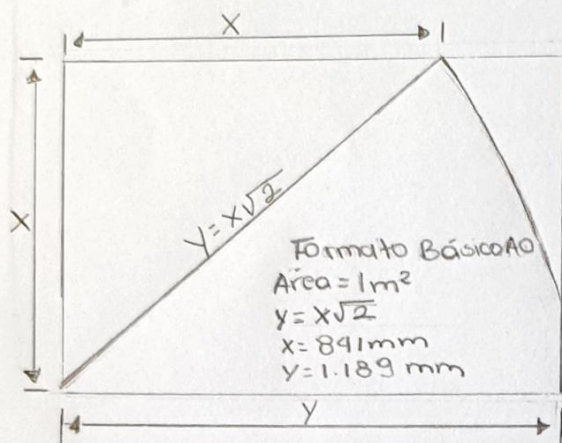 X
X
Y=X√2
Formato Básico A0
Area=1m²
y=x√2
x=841mm
Y=1.189 mm
Y